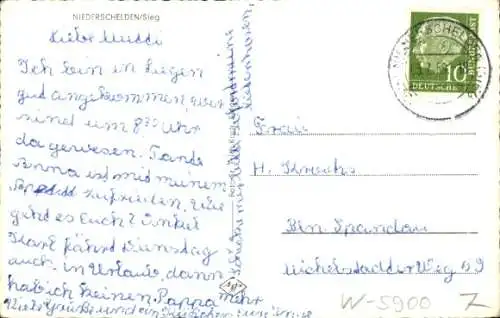 NIEDERSCHELDEN/Sieg
Liebe Mutti
Ich bin in Siegen
gut angekommen, wir
sind um 8³⁰ Uhr
da gewesen. Tante
Anna ist mit meinem
zufrieden. Wie
geht es Euch? Onkel
Karl fährt Dienstag
auch in Urlaub, dann
hab ich keinen Pappa mehr
Viele Grüße und ein Küßchen
DEUTSCHE BUNDESPOST
10
NIEDERSCHELDEN
Frau
H.
Bln Spandau
Michelstadter Weg 69
W-5900